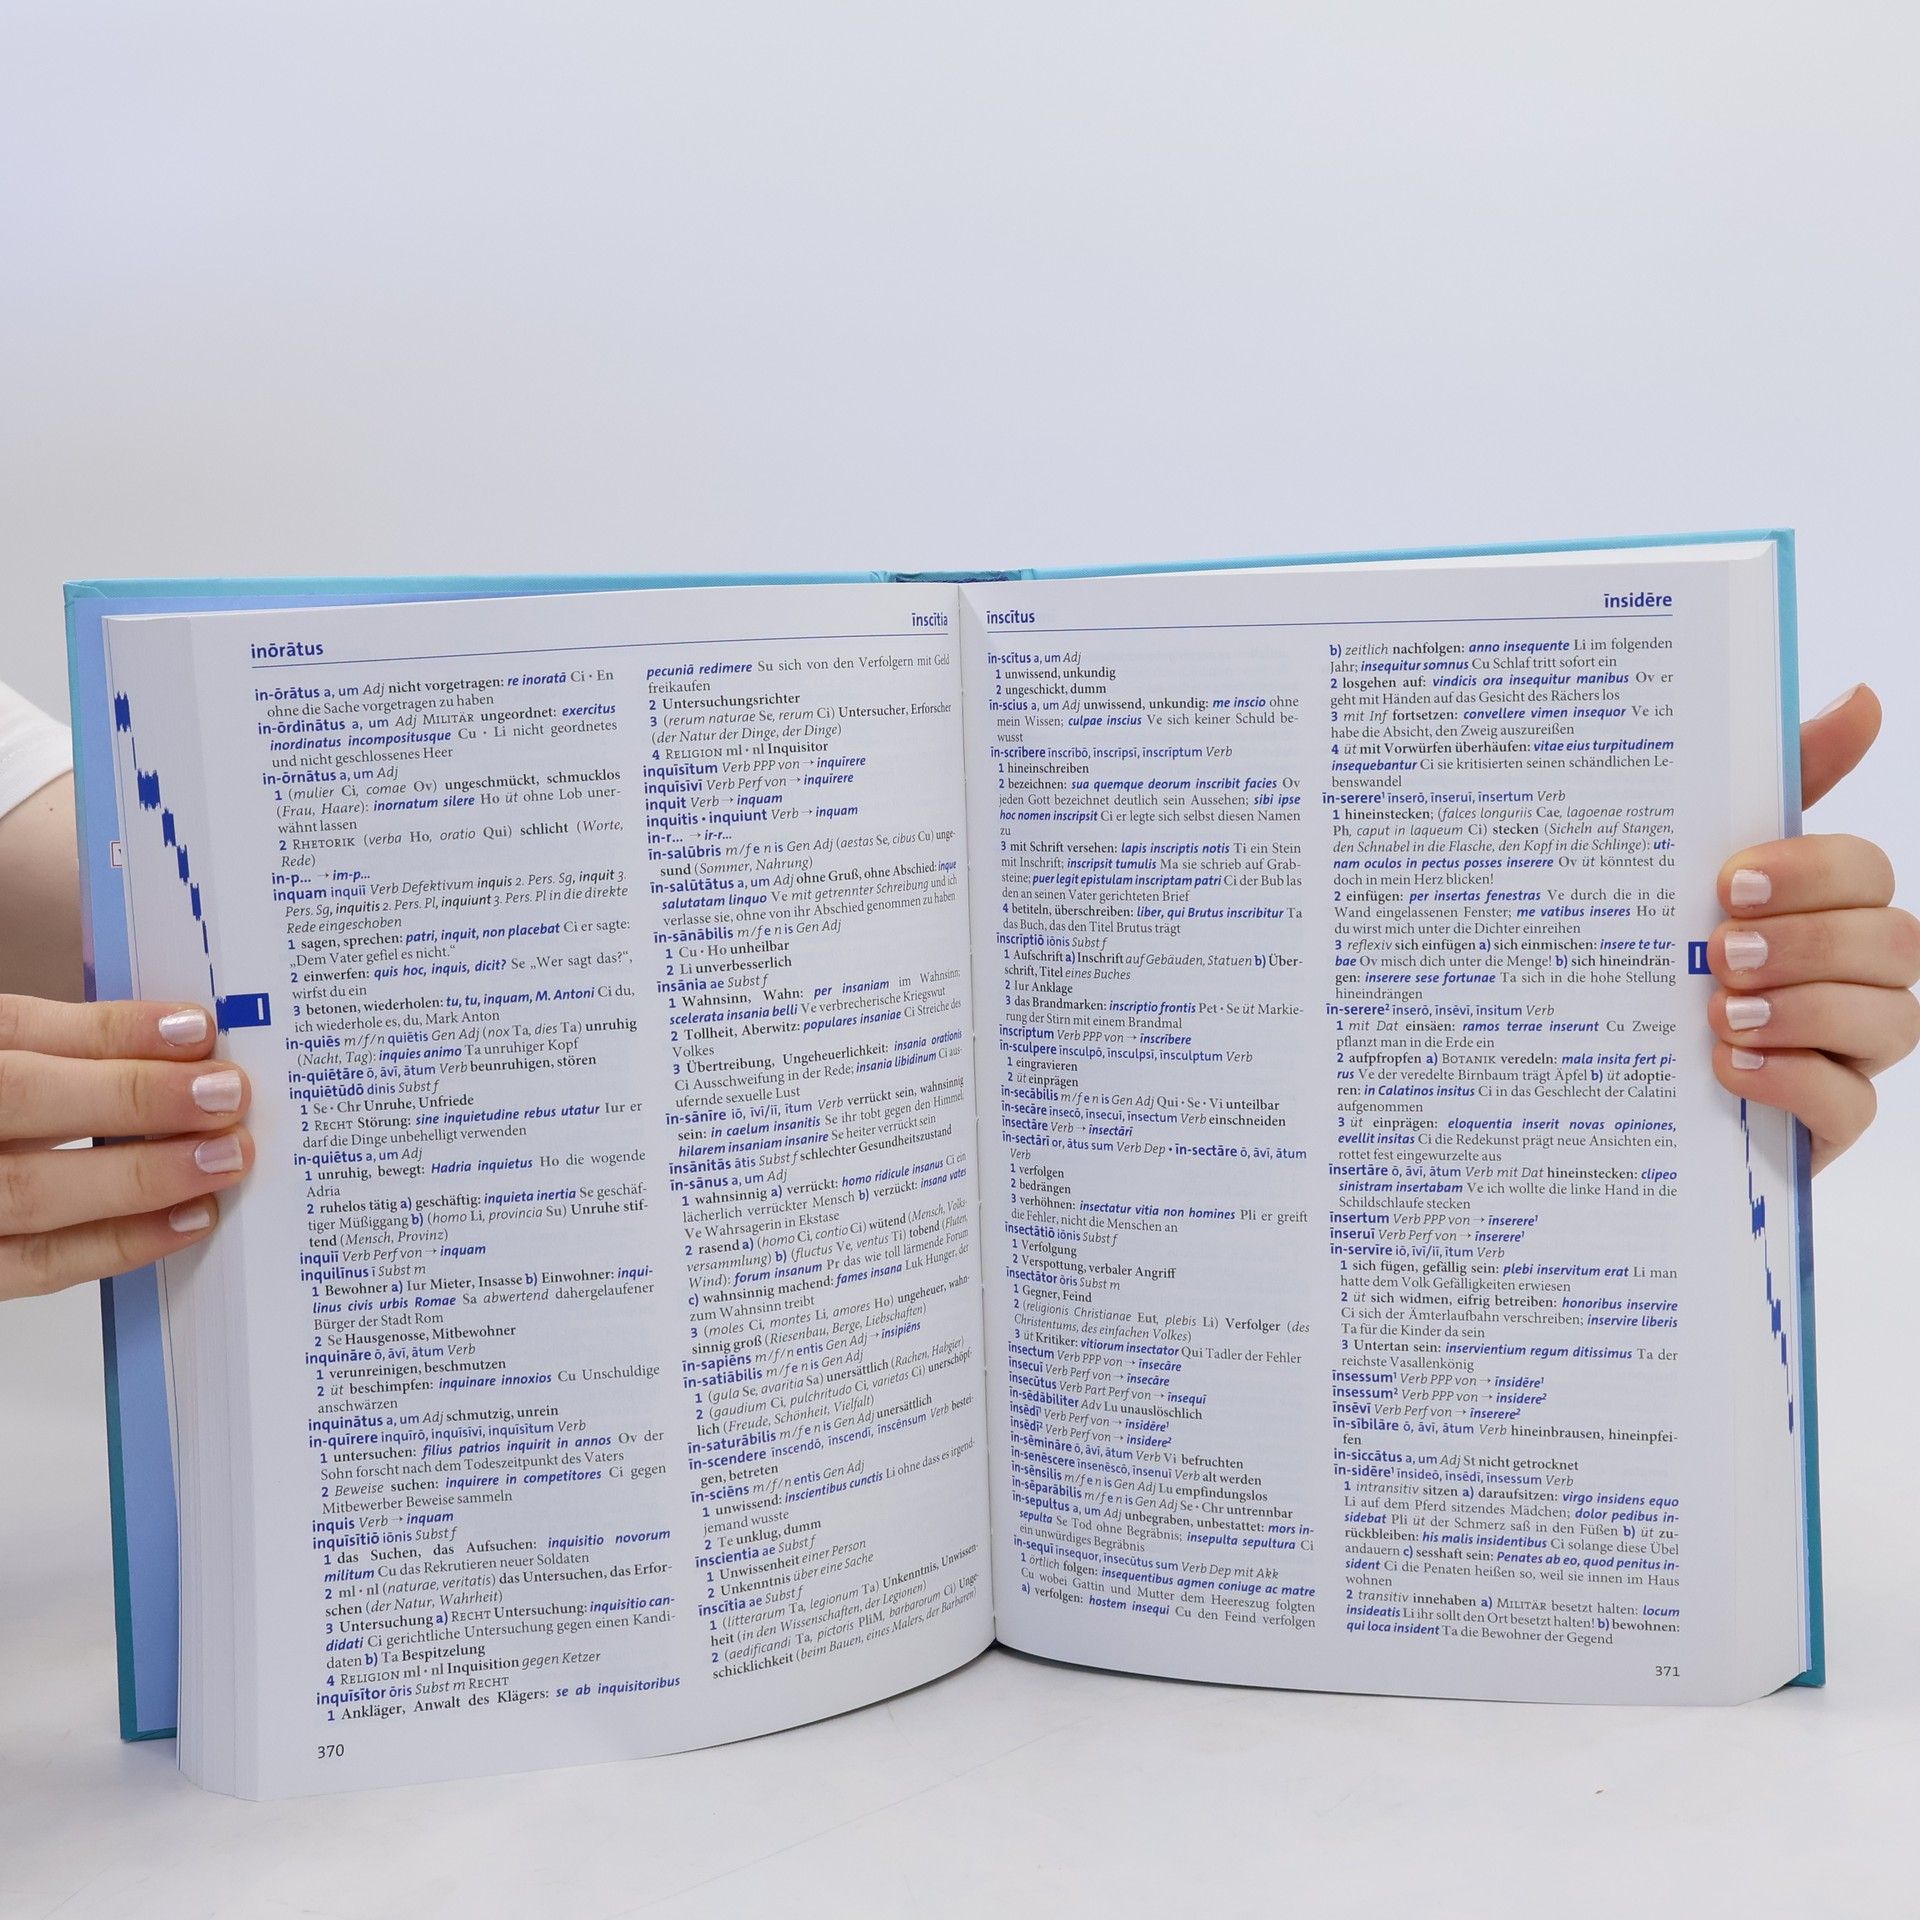 inōrātus
īnscītia
in-ōrātus a, um Adj nicht vorgetragen: re inoratā Ci • En
ohne die Sache vorgetragen zu haben
in-ōrdinātus a, um Adj MILITÄR ungeordnet: exercitus
inordinatus incompositusque Cu • Li nicht geordnetes
und nicht geschlossenes Heer
in-ōrnātus a, um Adj
1 (mulier Ci, comae Ov) ungeschmückt, schmucklos
(Frau, Haare): inornatum silere Ho üt ohne Lob uner-
wähnt lassen
2 RHETORIK (verba Ho, oratio Qui) schlicht (Worte,
Rede)
in-p... → im-p...
inquam inquiī Verb Defektivum inquis 2. Pers. Sg, inquit 3.
Pers. Sg, inquitis 2. Pers. Pl, inquiunt 3. Pers. Pl in die direkte
Rede eingeschoben
1 sagen, sprechen: patri, inquit, non placebat Ci er sagte:
„Dem Vater gefiel es nicht.“
2 einwerfen: quis hoc, inquis, dicit? Se „Wer sagt das?“,
wirfst du ein
3 betonen, wiederholen: tu, tu, inquam, M. Antoni Ci du,
ich wiederhole es, du, Mark Anton
in-quiēs m/f/n quiētis Gen Adj (nox Ta, dies Ta) unruhig
(Nacht, Tag): inquies animo Ta unruhiger Kopf
in-quiētāre ō, āvī, ātum Verb beunruhigen, stören
inquiētūdō dinis Subst f
1 Se • Chr Unruhe, Unfriede
2 RECHT Störung: sine inquietudine rebus utatur Iur er
darf die Dinge unbehelligt verwenden
in-quiētus a, um Adj
1 unruhig, bewegt: Hadria inquietus Ho die wogende
Adria
2 ruhelos tätig a) geschäftig: inquieta inertia Se geschäf-
tiger Müßiggang b) (homo Li, provincia Su) Unruhe stif-
tend (Mensch, Provinz)
inquiī Verb Perf von → inquam
inquilīnus ī Subst m
1 Bewohner a) Iur Mieter, Insasse b) Einwohner: inqui-
linus civis urbis Romae Sa abwertend dahergelaufener
Bürger der Stadt Rom
2 Se Hausgenosse, Mitbewohner
inquināre ō, āvī, ātum Verb
1 verunreinigen, beschmutzen
2 üt beschimpfen: inquinare innoxios Cu Unschuldige
anschwärzen
inquinātus a, um Adj schmutzig, unrein
in-quīrere inquīrō, inquīsīvī, inquīsītum Verb
1 untersuchen: filius patrios inquirit in annos Ov der
Sohn forscht nach dem Todeszeitpunkt des Vaters
2 Beweise suchen: inquirere in competitores Ci gegen
Mitbewerber Beweise sammeln
inquis Verb → inquam
inquīsītiō iōnis Subst f
1 das Suchen, das Aufsuchen: inquisitio novorum
militum Cu das Rekrutieren neuer Soldaten
2 ml • nl (naturae, veritatis) das Untersuchen, das Erfor-
schen (der Natur, Wahrheit)
3 Untersuchung a) RECHT Untersuchung: inquisitio can-
didati Ci gerichtliche Untersuchung gegen einen Kandi-
daten b) Ta Bespitzelung
4 RELIGION ml • nl Inquisition gegen Ketzer
inquīsītor ōris Subst m RECHT
1 Ankläger, Anwalt des Klägers: se ab inquisitoribus
pecuniā redimere Su sich von den Verfolgern mit Geld
freikaufen
2 Untersuchungsrichter
3 (rerum naturae Se, rerum Ci) Untersucher, Erforscher
(der Natur der Dinge, der Dinge)
4 RELIGION ml • nl Inquisitor
inquīsītum Verb PPP von → inquīrere
inquīsīvī Verb Perf von → inquīrere
inquit Verb → inquam
inquitis • inquiunt Verb → inquam
in-r... → ir-r...
īn-salūbris m/f e n is Gen Adj (aestas Se, cibus Cu) unge-
sund (Sommer, Nahrung)
īn-salūtātus a, um Adj ohne Gruß, ohne Abschied: inque
salutatam linquo Ve mit getrennter Schreibung und ich
verlasse sie, ohne von ihr Abschied genommen zu haben
īn-sānābilis m/f e n is Gen Adj
1 Cu • Ho unheilbar
2 Li unverbesserlich
īnsānia ae Subst f
1 Wahnsinn, Wahn: per insaniam im Wahnsinn;
scelerata insania belli Ve verbrecherische Kriegswut
2 Tollheit, Aberwitz: populares insaniae Ci Streiche des
Volkes
3 Übertreibung, Ungeheuerlichkeit: insania orationis
Ci Ausschweifung in der Rede; insania libidinum Ci aus-
ufernde sexuelle Lust
īn-sānīre iō, īvī/iī, ītum Verb verrückt sein, wahnsinnig
sein: in caelum insanitis Se ihr tobt gegen den Himmel;
hilarem insaniam insanire Se heiter verrückt sein
īnsānitās ātis Subst f schlechter Gesundheitszustand
īn-sānus a, um Adj
1 wahnsinnig a) verrückt: homo ridicule insanus Ci ein
lächerlich verrückter Mensch b) verzückt: insana vates
Ve Wahrsagerin in Ekstase
2 rasend a) (homo Ci, contio Ci) wütend (Mensch, Volks-
versammlung) b) (fluctus Ve, ventus Ti) tobend (Fluten,
Wind): forum insanum Pr das wie toll lärmende Forum
c) wahnsinnig machend: fames insana Luk Hunger, der
zum Wahnsinn treibt
3 (moles Ci, montes Li, amores Ho) ungeheuer, wahn-
sinnig groß (Riesenbau, Berge, Liebschaften)
īn-sapiēns m/f/n entis Gen Adj → īnsipiēns
īn-satiābilis m/f e n is Gen Adj
1 (gula Se, avaritia Sa) unersättlich (Rachen, Habgier)
2 (gaudium Ci, pulchritudo Ci, varietas Ci) unerschöpf-
lich (Freude, Schönheit, Vielfalt)
īn-saturābilis m/f e n is Gen Adj unersättlich
īn-scendere īnscendō, īnscendī, īnscēnsum Verb bestei-
gen, betreten
īn-sciēns m/f/n entis Gen Adj
1 unwissend: inscientibus cunctis Li ohne dass es irgend-
jemand wusste
2 Te unklug, dumm
īnscientia ae Subst f
1 Unwissenheit einer Person
2 Unkenntnis über eine Sache
īnscītia ae Subst f
1 (litterarum Ta, legionum Ta) Unkenntnis, Unwissen-
heit (in den Wissenschaften, der Legionen)
2 (aedificandi Ta, pictoris PliM, barbarorum Ci) Unge-
schicklichkeit (beim Bauen, eines Malers, der Barbaren)
370
I
īnscītus
īnsidēre
īn-scītus a, um Adj
1 unwissend, unkundig
2 ungeschickt, dumm
īn-scius a, um Adj unwissend, unkundig: me inscio ohne
mein Wissen; culpae inscius Ve sich keiner Schuld be-
wusst
īn-scrībere īnscrībō, īnscrīpsī, īnscrīptum Verb
1 hineinschreiben
2 bezeichnen: sua quemque deorum inscribit facies Ov
jeden Gott bezeichnet deutlich sein Aussehen; sibi ipse
hoc nomen inscripsit Ci er legte sich selbst diesen Namen
zu
3 mit Schrift versehen: lapis inscriptis notis Ti ein Stein
mit Inschrift; inscripsit tumulis Ma sie schrieb auf Grab-
steine; puer legit epistulam inscriptam patri Ci der Bub las
den an seinen Vater gerichteten Brief
4 betiteln, überschreiben: liber, qui Brutus inscribitur Ta
das Buch, das den Titel Brutus trägt
īnscrīptiō iōnis Subst f
1 Aufschrift a) Inschrift auf Gebäuden, Statuen b) Über-
schrift, Titel eines Buches
2 Iur Anklage
3 das Brandmarken: inscriptio frontis Pet • Se üt Markie-
rung der Stirn mit einem Brandmal
īnscrīptum Verb PPP von → īnscrībere
īn-sculpere īnsculpō, īnsculpsī, īnsculptum Verb
1 eingravieren
2 üt einprägen
īn-secābilis m/f e n is Gen Adj Qui • Se • Vi unteilbar
īn-secāre īnsecō, īnsecuī, īnsectum Verb einschneiden
īnsectāre Verb → īnsectārī
īn-sectārī or, ātus sum Verb Dep • īn-sectāre ō, āvī, ātum
Verb
1 verfolgen
2 bedrängen
3 verhöhnen: insectatur vitia non homines Pli er greift
die Fehler, nicht die Menschen an
īnsectātiō iōnis Subst f
1 Verfolgung
2 Verspottung, verbaler Angriff
īnsectātor ōris Subst m
1 Gegner, Feind
2 (religionis Christianae Eut, plebis Li) Verfolger (des
Christentums, des einfachen Volkes)
3 üt Kritiker: vitiorum insectator Qui Tadler der Fehler
īnsectum Verb PPP von → īnsecāre
īnsecuī Verb Perf von → īnsecāre
īnsecūtus Verb Part Perf von → īnsequī
īn-sēdābiliter Adv Lu unauslöschlich
īnsēdī¹ Verb Perf von → īnsidēre¹
īnsēdī² Verb Perf von → īnsīdere²
īn-sēmināre ō, āvī, ātum Verb Vi befruchten
īn-senēscere īnsenēscō, īnsenuī Verb alt werden
īn-sēnsilis m/f e n is Gen Adj Lu empfindungslos
īn-sēparābilis m/f e n is Gen Adj Se • Chr untrennbar
īn-sepultus a, um Adj unbegraben, unbestattet: mors in-
sepulta Se Tod ohne Begräbnis; insepulta sepultura Ci
ein unwürdiges Begräbnis
īn-sequī īnsequor, īnsecūtus sum Verb Dep mit Akk
1 örtlich folgen: insequentibus agmen coniuge ac matre
Cu wobei Gattin und Mutter dem Heereszug folgten
a) verfolgen: hostem insequi Cu den Feind verfolgen
b) zeitlich nachfolgen: anno insequente Li im folgenden
Jahr; insequitur somnus Cu Schlaf tritt sofort ein
2 losgehen auf: vindicis ora insequitur manibus Ov er
geht mit Händen auf das Gesicht des Rächers los
3 mit Inf fortsetzen: convellere vimen insequor Ve ich
habe die Absicht, den Zweig auszureißen
4 üt mit Vorwürfen überhäufen: vitae eius turpitudinem
insequebantur Ci sie kritisierten seinen schändlichen Le-
benswandel
īn-serere¹ īnserō, īnseruī, īnsertum Verb
1 hineinstecken; (falces longuriis Cae, lagoenae rostrum
Ph, caput in laqueum Ci) stecken (Sicheln auf Stangen,
den Schnabel in die Flasche, den Kopf in die Schlinge): uti-
nam oculos in pectus posses inserere Ov üt könntest du
doch in mein Herz blicken!
2 einfügen: per insertas fenestras Ve durch die in die
Wand eingelassenen Fenster; me vatibus inseres Ho üt
du wirst mich unter die Dichter einreihen
3 reflexiv sich einfügen a) sich einmischen: insere te tur-
bae Ov misch dich unter die Menge! b) sich hineindrän-
gen: inserere sese fortunae Ta sich in die hohe Stellung
hineindrängen
īn-serere² īnserō, īnsēvī, īnsitum Verb
1 mit Dat einsäen: ramos terrae inserunt Cu Zweige
pflanzt man in die Erde ein
2 aufpfropfen a) BOTANIK veredeln: mala insita fert pi-
rus Ve der veredelte Birnbaum trägt Äpfel b) üt adoptie-
ren: in Calatinos insitus Ci in das Geschlecht der Calatini
aufgenommen
3 üt einprägen: eloquentia inserit novas opiniones,
evellit insitas Ci die Redekunst prägt neue Ansichten ein,
rottet fest eingewurzelte aus
īnsertāre ō, āvī, ātum Verb mit Dat hineinstecken: clipeo
sinistram insertabam Ve ich wollte die linke Hand in die
Schildschlaufe stecken
īnsertum Verb PPP von → īnserere¹
īnseruī Verb Perf von → īnserere¹
īn-servīre iō, īvī/iī, ītum Verb
1 sich fügen, gefällig sein: plebi inservitum erat Li man
hatte dem Volk Gefälligkeiten erwiesen
2 üt sich widmen, eifrig betreiben: honoribus inservire
Ci sich der Ämterlaufbahn verschreiben; inservire liberis
Ta für die Kinder da sein
3 Untertan sein: inservientium regum ditissimus Ta der
reichste Vasallenkönig
īnsessum¹ Verb PPP von → īnsidēre¹
īnsessum² Verb PPP von → īnsīdere²
īnsēvī Verb Perf von → īnserere²
īn-sībilāre ō, āvī, ātum Verb hineinbrausen, hineinpfei-
fen
īn-siccātus a, um Adj St nicht getrocknet
īn-sidēre¹ īnsideō, īnsēdī, īnsessum Verb
1 intransitiv sitzen a) daraufsitzen: virgo insidens equo
Li auf dem Pferd sitzendes Mädchen; dolor pedibus in-
sidebat Pli üt der Schmerz saß in den Füßen b) üt zu-
rückbleiben: his malis insidentibus Ci solange diese Übel
andauern c) sesshaft sein: Penates ab eo, quod penitus in-
sident Ci die Penaten heißen so, weil sie innen im Haus
wohnen
2 transitiv innehaben a) MILITÄR besetzt halten: locum
insideatis Li ihr sollt den Ort besetzt halten! b) bewohnen:
qui loca insident Ta die Bewohner der Gegend
371
I